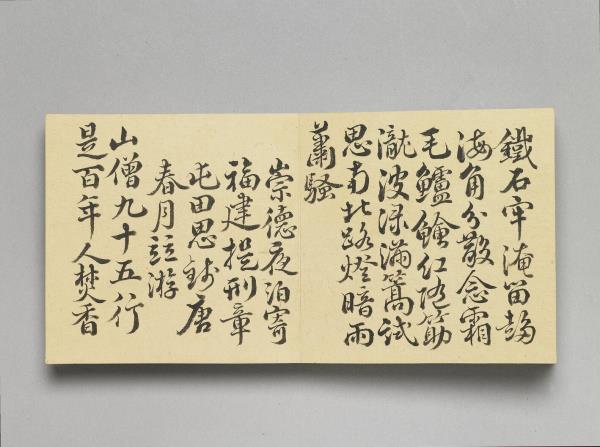 鐵石牢淹留趨
海角分散念霜
毛鱸鱠紅隨筯
瀧波淥滿篙試
思南北路燈暗雨
蕭騷
崇德夜泊寄
福建提刑章
屯田思錢唐
春月並游
山僧九十五行
是百年人焚香